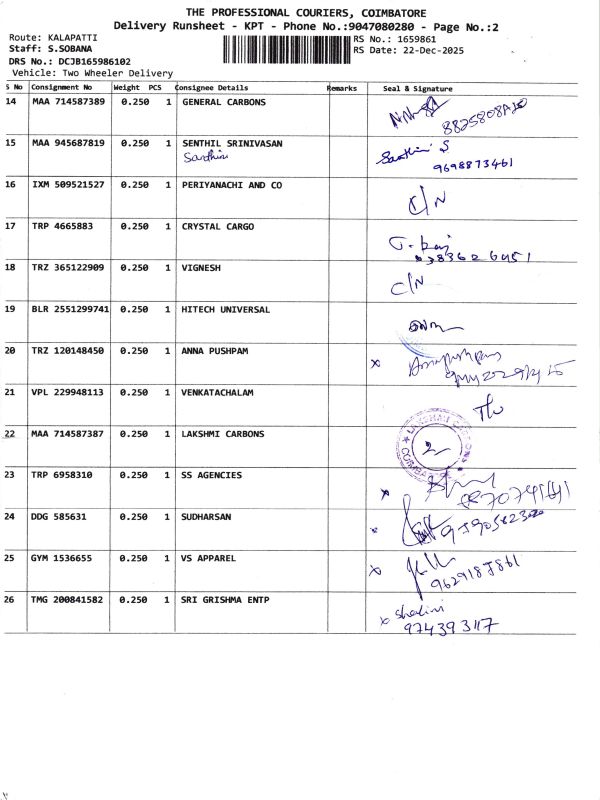 THE PROFESSIONAL COURIERS, COIMBATORE
Delivery Runsheet - KPT - Phone No.:9047080280 - Page No.:2
Route: KALAPATTI RS No.: 1659861
Staff: S.SOBANA RS Date: 22-Dec-2025
DRS No.: DCJB165986102
Vehicle: Two Wheeler Delivery
S No Consignment No Weight PCS Consignee Details Remarks Seal & Signature
14 MAA 714587389 0.250 1 GENERAL CARBONS
15 MAA 945687819 0.250 1 SENTHIL SRINIVASAN
9698873461
16 IXM 509521527 0.250 1 PERIYANACHI AND CO C/N
17 TRP 4665883 0.250 1 CRYSTAL CARGO
18 TRZ 365122909 0.250 1 VIGNESH C/N
19 BLR 2551299741 0.250 1 HITECH UNIVERSAL
20 TRZ 120148450 0.250 1 ANNA PUSHPAM x
21 VPL 229948113 0.250 1 VENKATACHALAM
22 MAA 714587387 0.250 1 LAKSHMI CARBONS
LAKSHMI CARBONS
23 TRP 6958310 0.250 1 SS AGENCIES x
24 DDG 585631 0.250 1 SUDHARSAN x
25 GYM 1536655 0.250 1 VS APPAREL x
26 TMG 200841582 0.250 1 SRI GRISHMA ENTP x Shalini
974393117